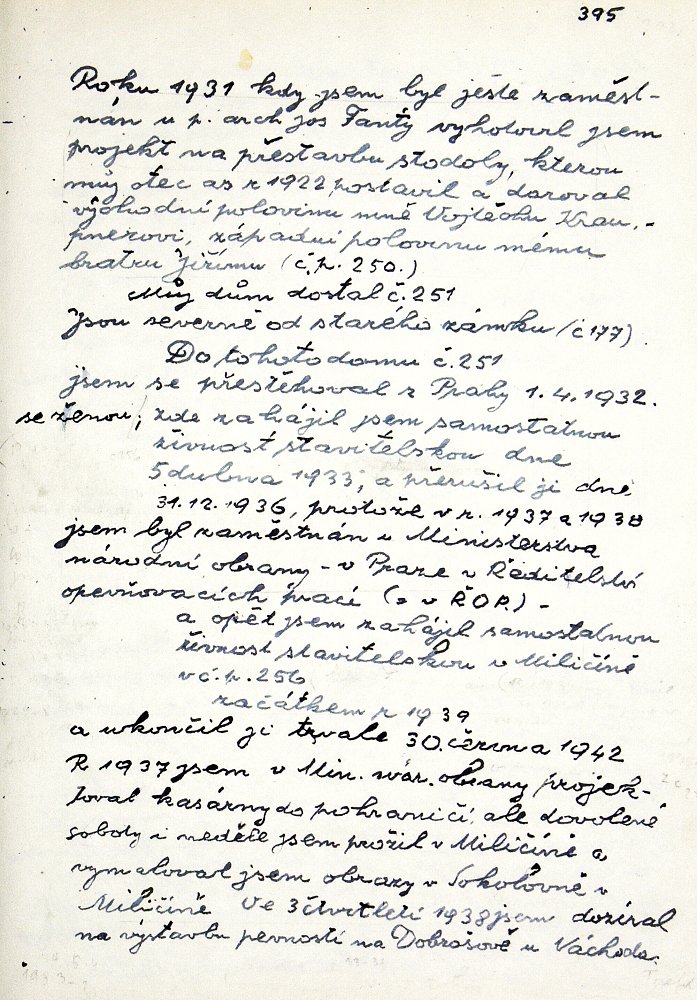 395
Roku 1931 kdy jsem byl ješte zaměst-
nán u p. arch Jos Fanty vyhotovil jsem
projekt na přestavbu stodoly, kterou
můj otec as r 1922 postavil a daroval
východní polovinu mně Vojtěchu Krau.-
pnerovi, západní polovinu mému
bratru Jiřímu (č.p. 250.)
Můj dům dostal č. 251
Jsou severně od starého zámku (č 177)
Do tohoto domu č. 251
jsem se přestěhoval z Prahy 1.4.1932.
se ženou, zde zahájil jsem samostatnou
živnost stavitelskou dne
5 dubna 1933, a přerušil ji dne
31.12.1936, protože v r. 1937 a 1938
jsem byl zaměstnán u Ministerstva
národní obrany - v Praze v Ředitelství
opevňovacích prací (= v ŘOP.) -
a opět jsem zahájil samostatnou
živnost stavitelskou v Miličíně
v č.p. 256
začátkem r 1939
a ukončil ji trvale 30. června 1942
R 1937 jsem v Min. nár. obrany projek-
toval kasárny do pohraničí, ale dovolené
soboty i neděle jsem prožil v Miličíně a
vymaloval jsem obrazy v Sokolovně v
Miličíně Ve 3 čtvrtletí 1938 jsem dozíral
na výstavbu pevností na Dobrošově u Náchoda.